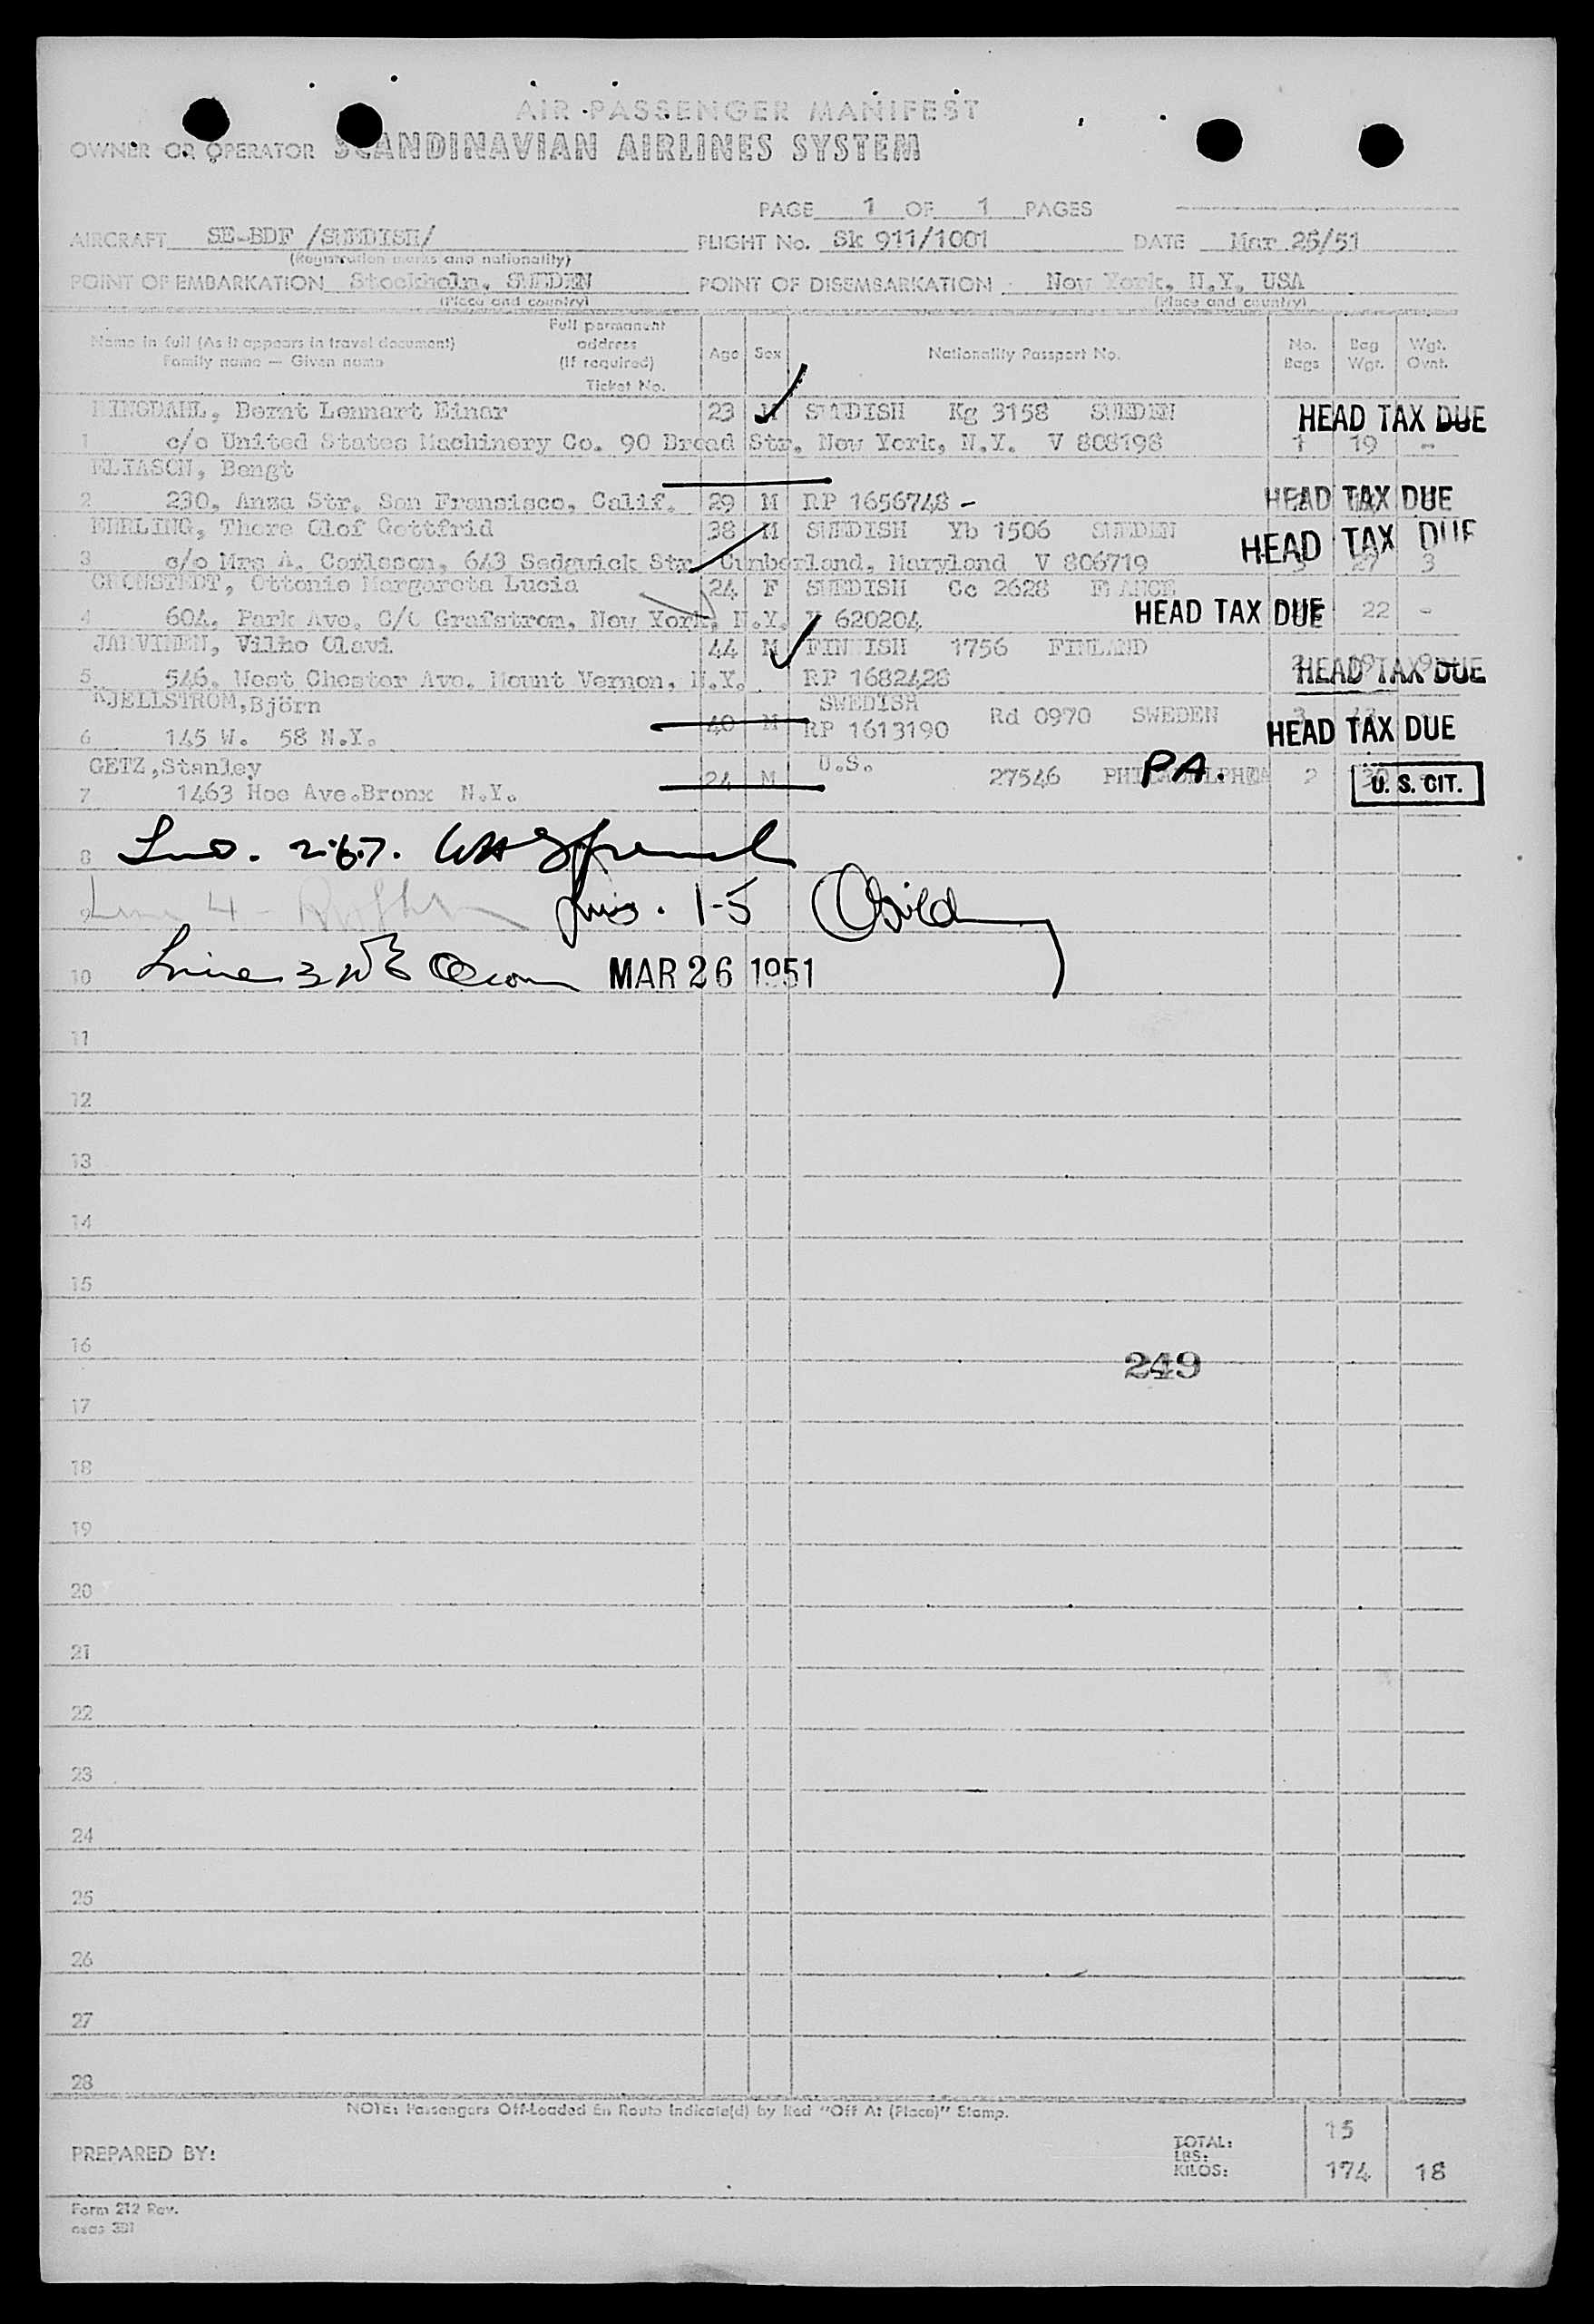 AIR PASSENGER MANIFEST
OWNER OR OPERATOR SCANDINAVIAN AIRLINES SYSTEM
PAGE 1 OF 1 PAGES
AIRCRAFT SE-BDF /SWEDISH/ FLIGHT No. Sk 911/1001 DATE Mar 25/51
(Registration marks and nationality)
POINT OF EMBARKATION Stockholm, SWEDEN POINT OF DISEMBARKATION New York, N.Y. USA
(Place and country) (Place and country)
Name in full (As it appears in travel document) Family name — Given name
Full permanent address (If required) Ticket No.
Age Sex Nationality Passport No. No. Bags Bag Wgt. Wgt. Ovnt.
Bernt Lennart Einar 23 M SWEDISH Kg 3158 SWEDEN HEAD TAX DUE
1 c/o United States Machinery Co. 90 Broad Str. New York, N.Y. V 808198 1 19 -
ELIASON, Bengt
2 230, Anza Str. San Fransisco, Calif. 29 M RP 1656748 - HEAD TAX DUE
EHRLING, Thore Olof Gottfrid 38 M SWEDISH Yb 1506 SWEDEN
3 c/o Mrs A. Carlsson, 643 Sedgwick Str. Cumberland, Maryland V 806719 HEAD TAX DUE 27 3
CRONSTEDT, Ottonie Margareta Lucia 24 F SWEDISH Cc 2628 FRANCE
4 604, Park Ave. C/O Grafstrom, New York, N.Y. V 620204 HEAD TAX DUE 22 -
JARVINEN, Vilho Olavi 44 M FINNISH 1756 FINLAND
5 546, West Chester Ave. Mount Vernon, N.Y. RP 1682428 HEAD TAX DUE
KJELLSTROM,Björn 40 M SWEDISH Rd 0970 SWEDEN
6 145 W. 58 N.Y. RP 1613190 HEAD TAX DUE
GETZ,Stanley 24 M U.S. 27546 PHILADELPHIA PA. 2 30
7 1463 Hoe Ave.Bronx N.Y. U. S. CIT.
8 2.6.7.
9 Line 4 - 1-5
10 Line 3 MAR 26 1951
11
12
13
14
15
16
249
17
18
19
20
21
22
23
24
25
26
27
28
NOTE: Passengers Off-Loaded En Route Indicate(d) by Red "Off At (Place)" Stamp.
PREPARED BY:
TOTAL: 15
LBS:
KILOS: 174 18
Form 212 Rev.